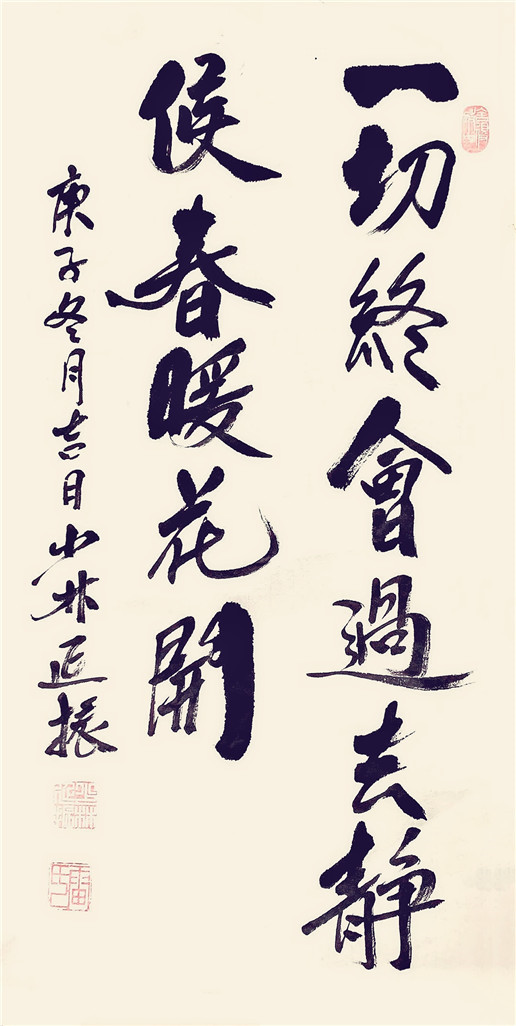 一切終會過去静
候春暖花開
庚子冬月吉日少林延振